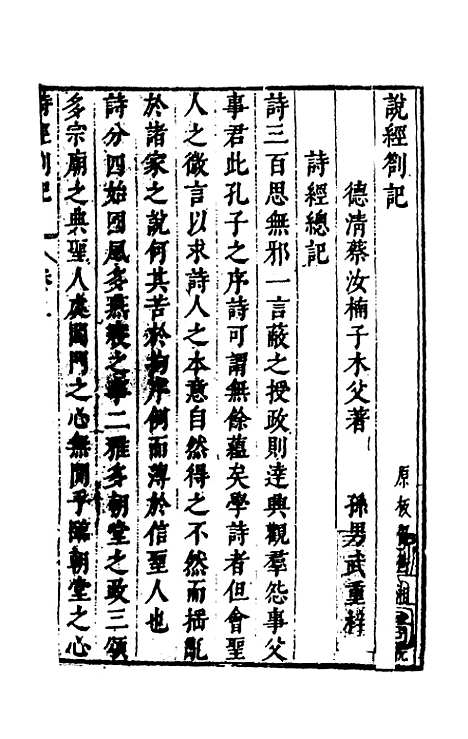 說經劄記
德清蔡汝楠子木父著 孫男武重梓
原板
詩經總記
詩三百思無邪一言蔽之授政則達興觀羣怨事父
事君此孔子之序詩可謂無餘蘊矣學詩者但會聖
人之微言以求詩人之本意自然得之不然而揺亂
於諸家之說何其苦於拘序例而薄於信聖人也
詩分四始國風多燕𥜥之事二雅多朝堂之政三頌
多宗廟之典聖人處閨門之心無間乎臨朝堂之心
詩經劄記